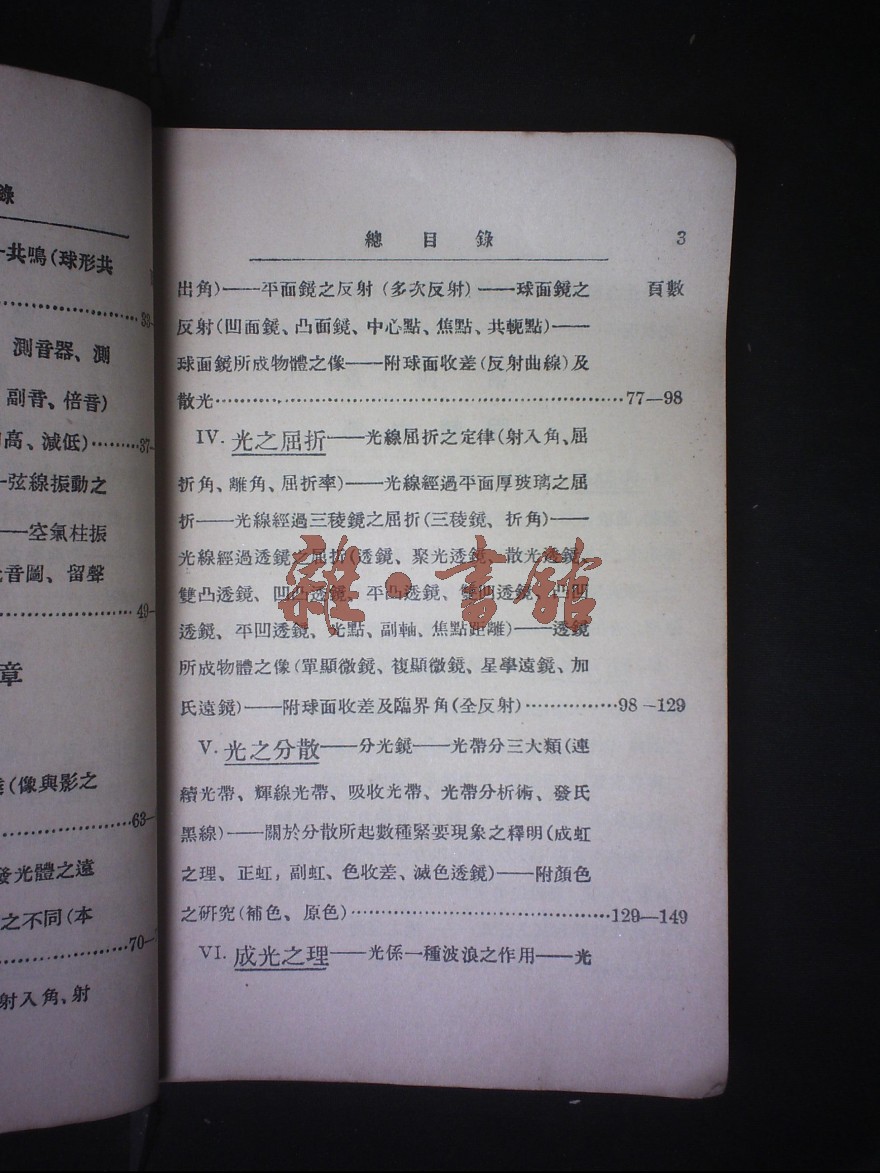 錄
共鳴(球形共
33
測音器、測
副音、倍音)
高、減低)………37
弦線振動之
——空氣柱振
音圖、留聲
49
章
(像與影之
63
發光體之遠
之不同(本
70
射入角、射
總目錄 3
頁數
出角)——平面鏡之反射(多次反射)——球面鏡之
反射(凹面鏡、凸面鏡、中心點、焦點、共軛點)——
球面鏡所成物體之像——附球面收差(反射曲線)及
散光……………………………………………………77—98
IV. 光之屈折——光線屈折之定律(射入角、屈
折角、離角、屈折率)——光線經過平面厚玻璃之屈
折——光線經過三稜鏡之屈折(三稜鏡、折角)——
光線經過透鏡之屈折(透鏡、聚光透鏡、散光透鏡、
雙凸透鏡、凹凸透鏡、平凸透鏡、雙凹透鏡、凸凹
透鏡、平凹透鏡、光點、副軸、焦點距離)——透鏡
所成物體之像(單顯微鏡、複顯微鏡、星學遠鏡、加
氏遠鏡)——附球面收差及臨界角(全反射)……………98—129
V. 光之分散——分光鏡——光帶分三大類(連
續光帶、輝線光帶、吸收光帶、光帶分析術、發氏
黑線)——關於分散所起數種緊要現象之釋明(成虹
之理、正虹,副虹、色收差、滅色透鏡)——附顏色
之研究(補色、原色)…………………………………129—149
VI. 成光之理——光係一種波浪之作用——光
雜·書館